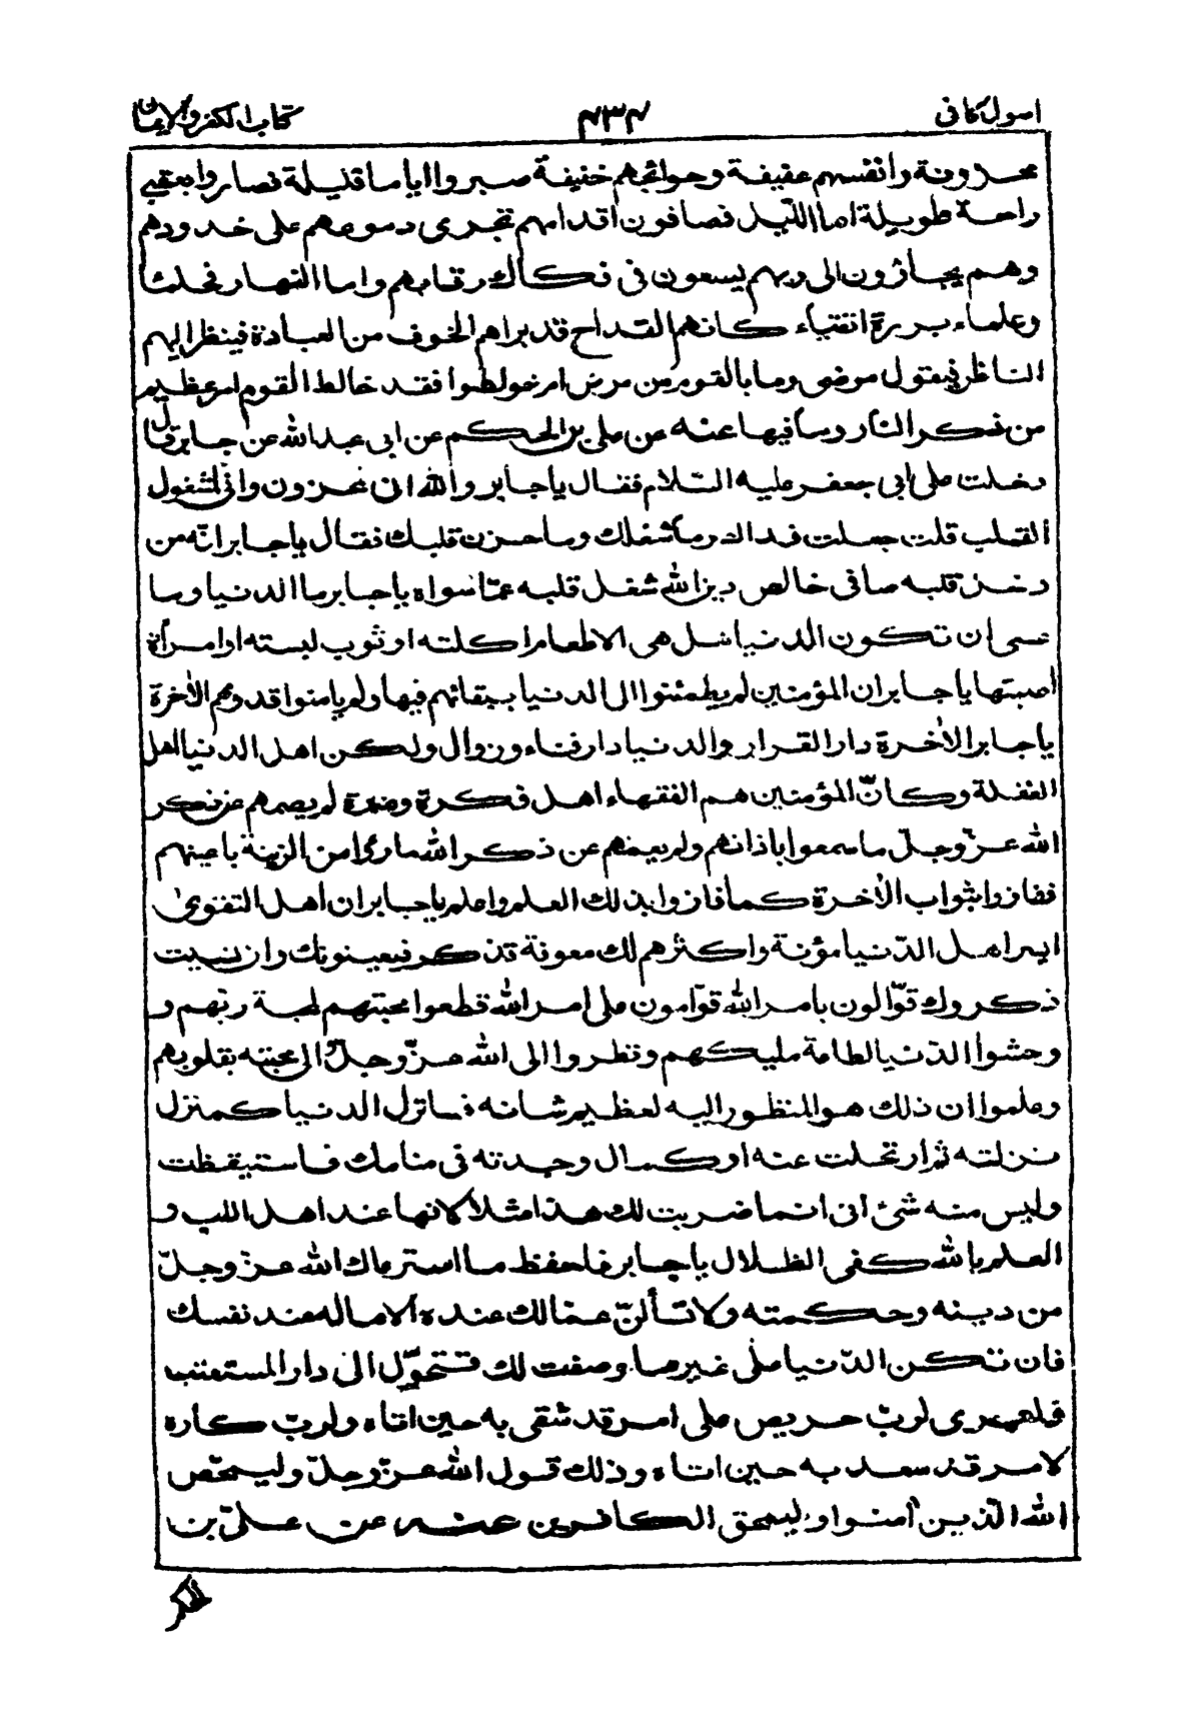 اصول كافى
٤٣٤
كتاب الكفر والايمان
محزونة وانفسهم عفيفة وحوائجهم خفيفة صبروا اياما قليلة فصاروا بعقبى
راحة طويلة اما الليل فصافون اقدامهم تجرى دموعهم على خدودهم
وهم يجأرون الى ربهم يسعون فى فكاك رقابهم واما النهار فحلماء
وعلماء بررة اتقياء كانهم القداح قد براهم الخوف من العبادة فينظر اليهم
الناظر فيقول مرضى وما بالقوم من مرض ام خولطوا فقد خالط القوم امر عظيم
من ذكر النار وما فيها عنه عن على بن الحكم عن ابى عبدالله عن جابر قال
دخلت على ابى جعفر عليه السّلام فقال يا جابر والله انى لمحزون وانى لمشغول
القلب قلت جعلت فداك وما شغلك وما حزن قلبك فقال يا جابر انّه من
دخل قلبه صافى خالص دين الله شغل قلبه عمّا سواه يا جابر ما الدنيا وما
عسى ان تكون الدنيا هل هى الا طعام اكلته او ثوب لبسته او امرأة
اصبتها يا جابر ان المؤمنين لم يطمئنوا الى الدنيا ببقائهم فيها ولم يامنوا قدومهم الأخرة
يا جابر الأخرة دار القرار والدنيا دار فناء وزوال ولكن اهل الدنيا اهل
الغفلة وكانّ المؤمنين هم الفقهاء اهل فكرة وعبرة لم يصمهم عن ذكر
الله عزّ وجلّ ما سمعوا باذانهم ولم يعمهم عن ذكر الله ما رأوا من الزينة باعينهم
ففازوا بثواب الأخرة كما فازوا بذلك العلم واعلم يا جابر ان اهل التقوى
ايسر اهل الدّنيا مؤنة واكثرهم لك معونة تذكر فيعينونك وان نسيت
ذكروك قوّالون بامر الله قوّامون على امر الله قطعوا محبتهم لمحبة ربّهم و
وحشوا الدّنيا لطاعة مليكهم ونظروا الى الله عزّ وجلّ والى محبّته بقلوبهم
وعلموا ان ذلك هو المنظور اليه لعظيم شانه فانزل الدنيا كمنزل
نزلته ثم ارتحلت عنه او كمال وجدته فى منامك فاستيقظت
وليس منه شئ انى انما ضربت لك هذا مثلا لانها عند اهل اللب و
العلم بالله كفى الظلال يا جابر فاحفظ ما استرعاك الله عزّ وجلّ
من دينه وحكمته ولا تسألنّ عمّا لك عنده الا ما له عند نفسك
فان تكن الدّنيا على غير ما وصفت لك فتحوّل الى دار المستعتب
فلعمرى لربّ حريص على امر قد شقى به حين اتاه ولربّ كاره
لامر قد سعد به حين اتاه وذلك قول الله عزّ وجلّ وليمحّص
الله الّذين أمنوا ويمحق الكافرين عنه عن علىّ بن
الحكم